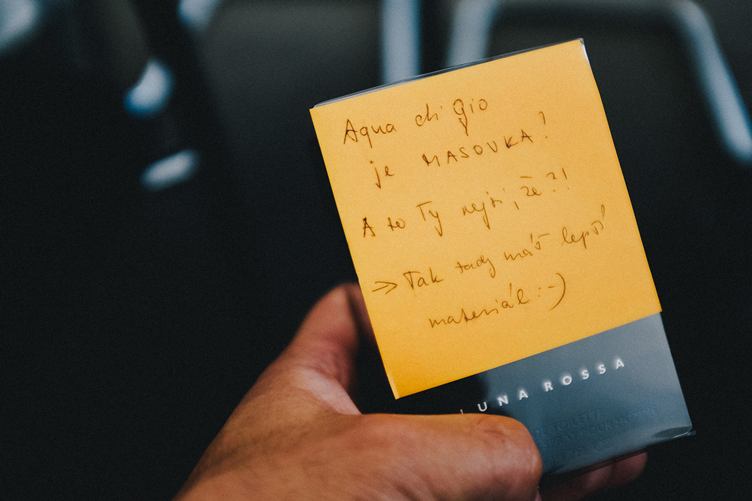 Aqua di Gio
je MASOVKA!
A to Ty nejsi, že?!
=> Tak tady máš lepší
materiál :-)
LUNA ROSSA